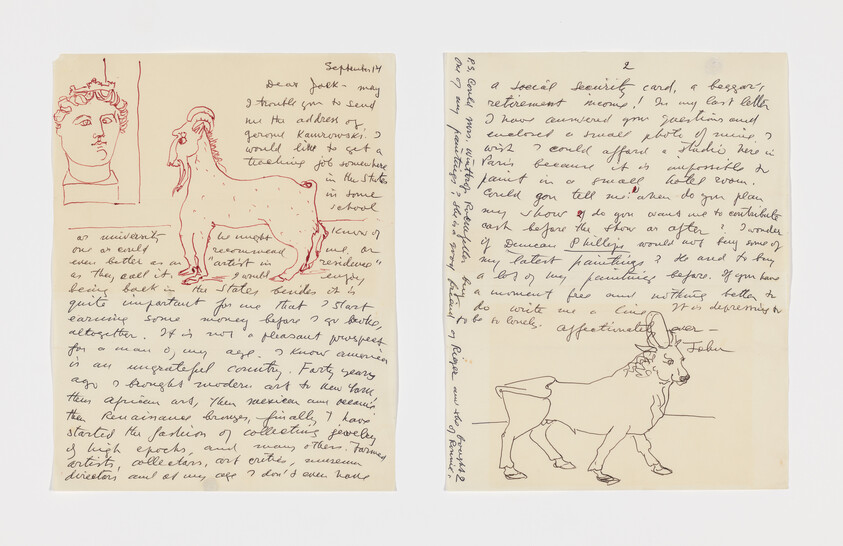 September 14
Dear Jack - may
I trouble you to send
me the address of
gerome Kamrowski. I
would like to get a
teaching job somewhere
in the States
in some
school
or university he might know of
one or could recommend me, or
even better as an "artist in residence"
as they call it. I would enjoy
being back in the States besides it is
quite important for me that I start
earning some money before I go broke,
altogether. It is not a pleasant prospect
for a man of my age. I know america
is an ungrateful country. Forty years
ago I brought modern art to New York
then african art, Then mexican and oceanic
then Renaisance bronzes, finally I have
started the fashion of collecting jewelry
of high epochs, and many others. Formed
artists, collectors, art critics, museum
directors and at my age I don't even have
2
a social security card, a beggar's
retirement income! In my last letter
I have answered your questions and
enclosed a small photo of mine I
wish I could afford a studio here in
Paris because it is impossible to
paint in a small hotel room.
Could you tell me when do you plan
my show & do you want me to contribute
cash before the show or after? I wonder
if Duncan Phillips would not buy some of
my latest paintings? He used to buy
a lot of my painting before. If you have
a moment free and nothing better to
do write me a line. It is depressing to
be so lonely. affectionately ever -
John
P.S. Could Mrs. Winthrop Rockefeller buy
one of my paintings? She is a good friend of Roger and she bought 2
of Ronnie.